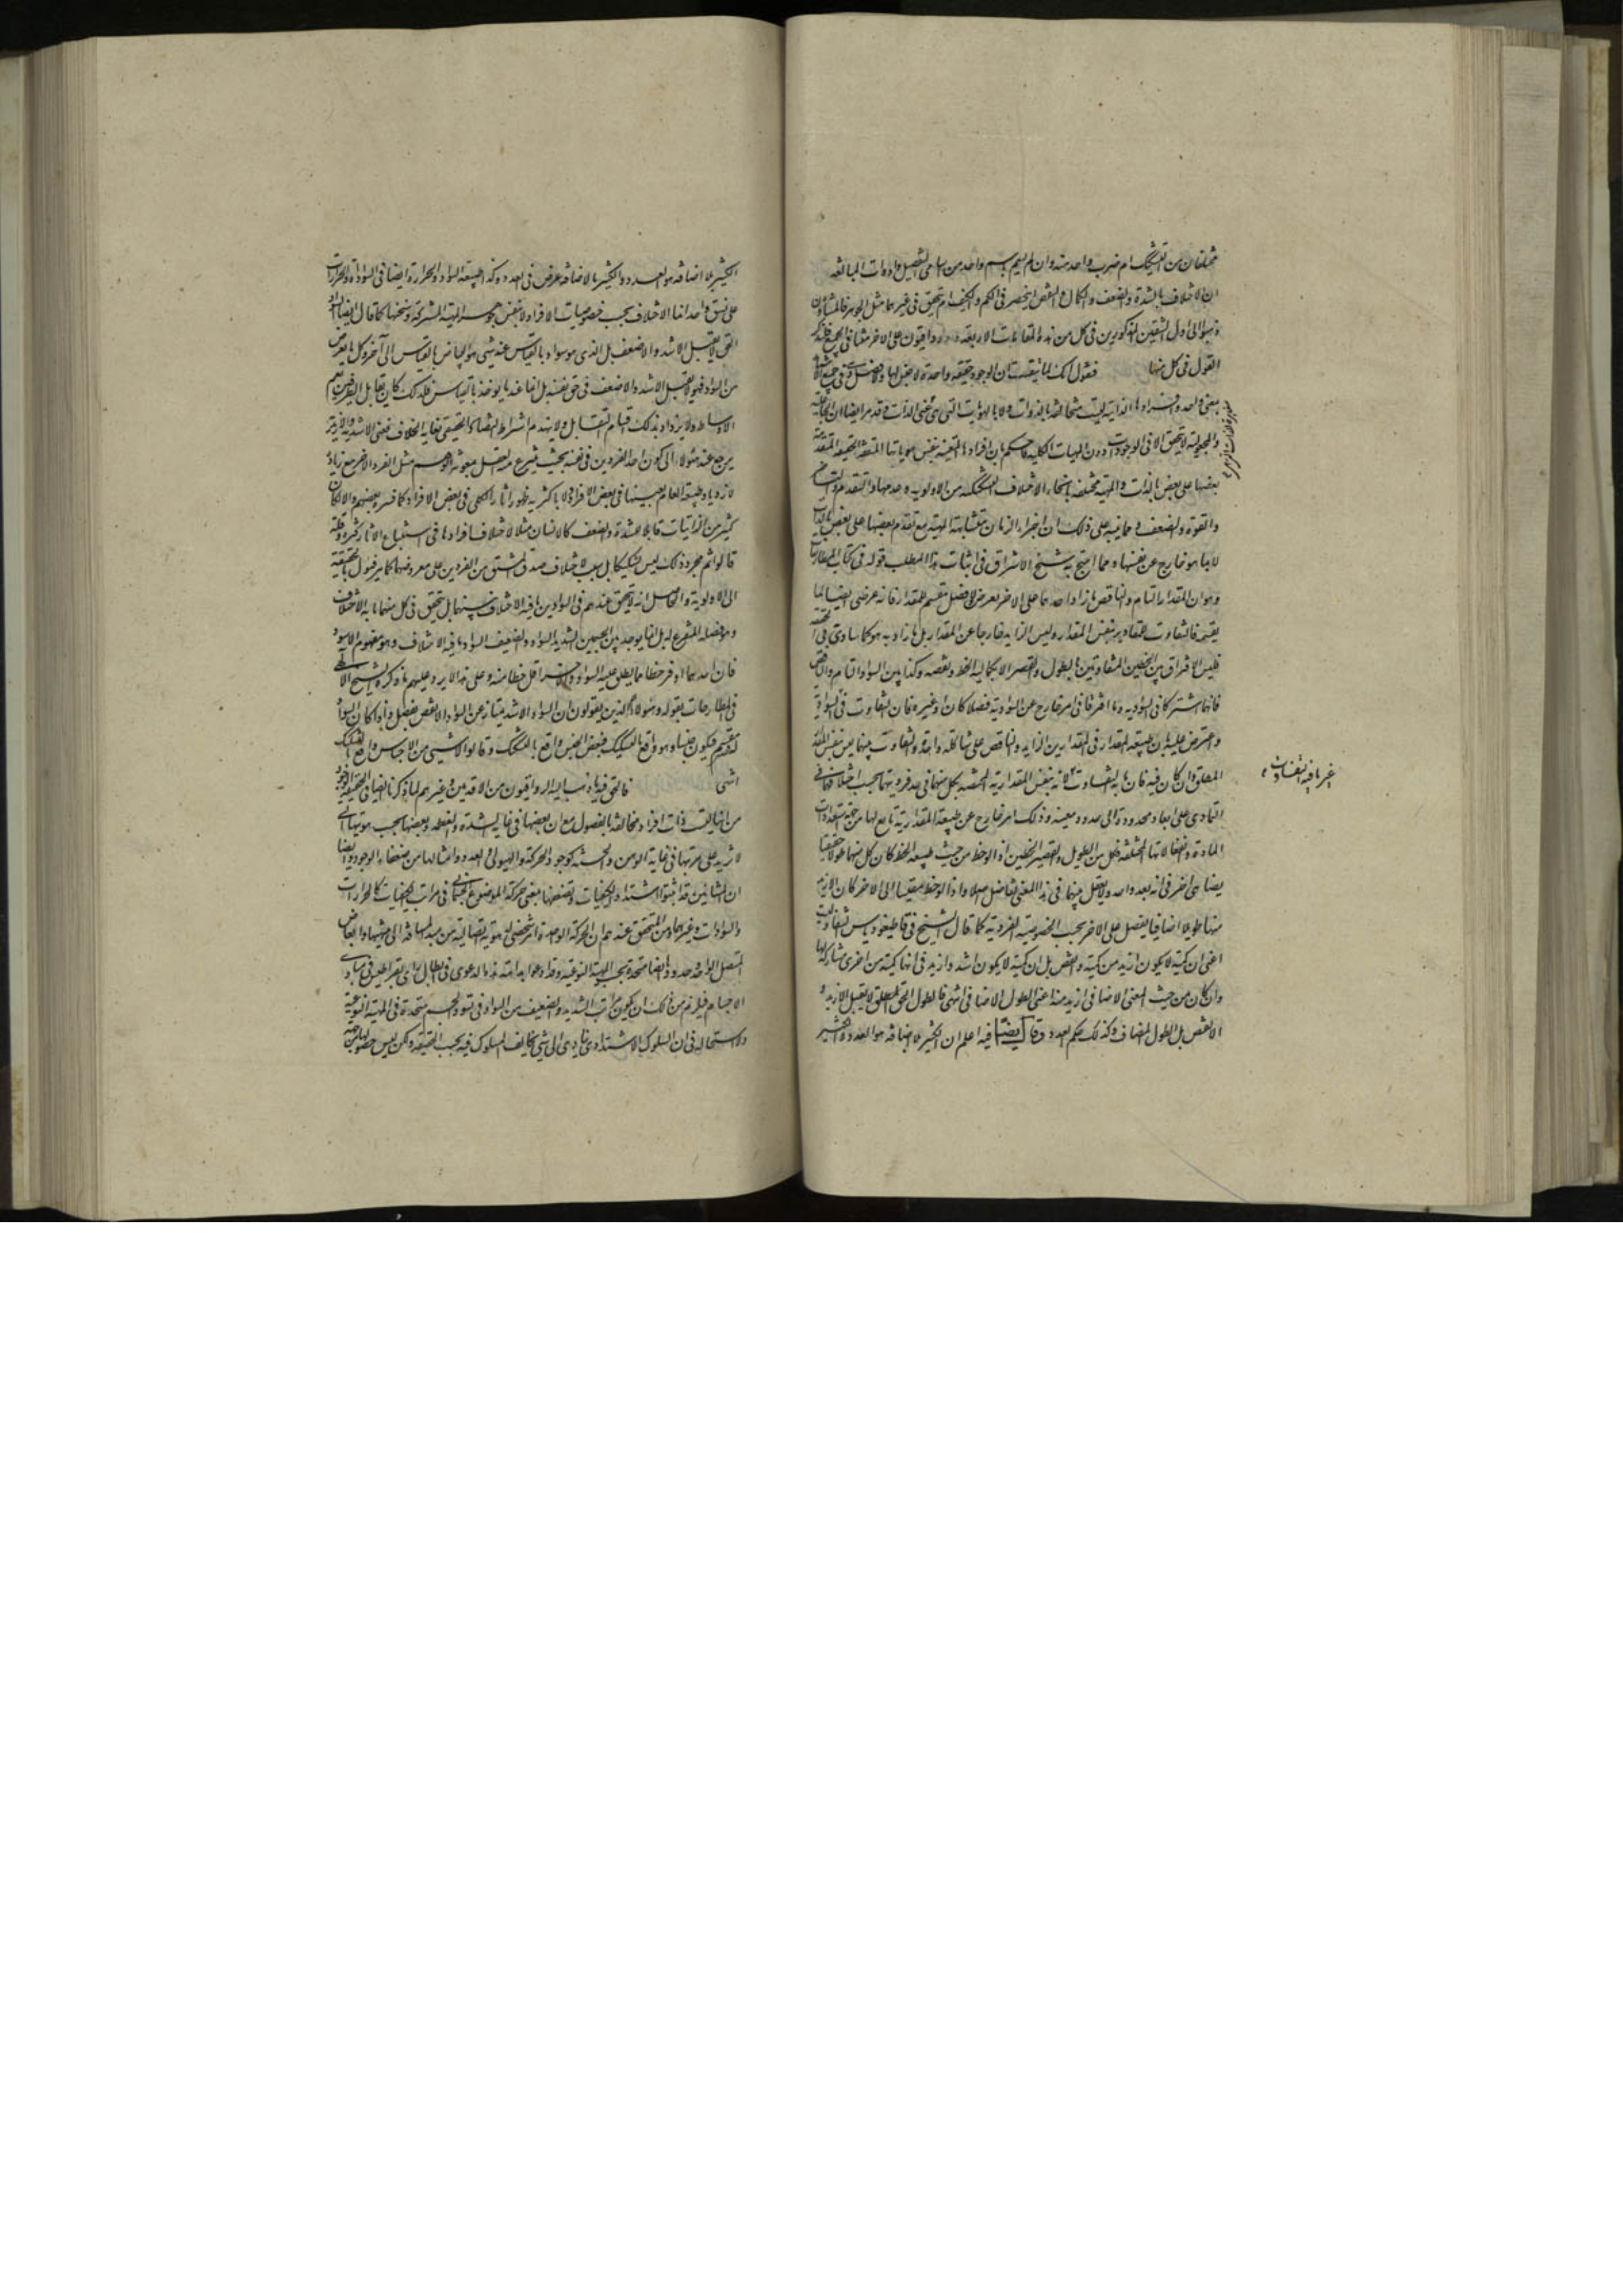 مختلفان من التشكيك ام ضرب واحد منه وان لم يسم باسم واحد من اسامي التفضيل وادوات المبالغة
ان الاختلاف بالشدة والضعف والكمال والنقص اينحصر في الكم والكيف ام يتحقق في غيرهما مثل الجوهر فالمشاؤن
ذهبوا الى اول الشقين المذكورين في كل من هذه المقامات الاربعة والرواقيون على الاخر منها في الجميع فلنذكر
القول في كل منها فنقول انك لما تيقنت ان الوجود حقيقة واحدة لا جنس لها ولا فصل وهي في جميع الاشياء
بمعنى واحد وافرادها الذاتية ليست متخالفة بالذوات ولا بالهويات التي هي عين الذات وقد مر ايضا ان الجاعلية
والمجعولية لا تتحقق الا في الوجودات دون المهيات الكلية فاحكم بان افرادها المتعينة بنفس هوياتها المتفقة الحقيقة المتقدمة
بعضها على بعض بالذات والمهية مختلفة بانحاء الاختلاف التشكيكية من الاولوية وعدمها والتقدم والتاخر
والقوة والضعف ومما ينبه على ذلك ان اجزاء الزمان متشابهة المهية مع تقدم بعضها على بعض بالذات
لا بما هو خارج عن نفسها ومما احتج به شيخ الاشراق في اثبات هذا المطلب قوله في كتاب المطارحات
وهو ان المقدار التام والناقص ما زاد احدهما على الاخر بعرض ولا فصل مقسم للمقدار فانه عرضي ايضا لما
يقسمه فالتفاوت في المقادير بنفس المقدار وليس الزايد خارجا عن المقدار بل ما زاد به هو كما ساوى به في الحقيقة
فليس الافتراق بين الخطين المتفاوتين بالطول والقصر الا بكمالية الخط ونقصه وكذا بين السواد التام والناقص
فانهما اشتركا في السوادية وما افترقا في امر خارج عن السوادية فصلا كان او غيره فان التفاوت في السوادية
واعترض عليه بان طبيعة المقدار في المقدارين الزايد والناقص على شاكلة واحدة والتفاوت بينهما ليس بنفس المقدار
المطلق وان كان فيه فان ما به التفاوت فانه بنفس المقدارية المختصة بكل منهما في حد فرديتها بحسب اختلافهما في
التمادي على ابعاد محدودة الى حدود معينة وذلك امر خارج عن طبيعة المقدارية تابع لها من جهة استعدادات
المادة وانفعالاتها المختلفة فكل من الطويل والقصير الخطين اذا لوحظ من حيث طبيعة الخط كان كل منهما طولا حقيقيا
يضاهي الاخر في انه بعد واحد ولا يعقل بينهما في هذا المعنى تفاضل اصلا واذا لوحظ مقيسا الى الاخر كان الازيد
منهما طويلا اضافيا يفضل على الاخر بحسب الخصوصية الفردية كما قال الشيخ في قاطيغورياس
اعني ان كمية لا يكون ازيد من كمية وانقص بل ان كمية لا يكون اشد وازيد في انها كمية من اخرى مشاركة لها
وان كان من حيث المعنى الاضافي ازيد منها اعني الطول الاضافي انتهى فالطول الحق المطلق لا يقبل الازيد و
الانقص بل الطول المضاف وكذلك حكم العدد وقال ايضا فيه اعلم ان الكثير بلا اضافة هو العدد والكثير
غير ما فيه التفاوت
الكثير بلا اضافة هو العدد والكثير بالاضافة عرض في العدد وكذا طبيعة السواد والحرارة وايضا في السوادات والحرارات
على نسق واحد انما الاختلاف بحسب خصوصيات الافراد لا بنفس جوهر المهية المشتركة وسنخها كما قال ايضا السواد
الحق لا يقبل الاشد والاضعف بل الذي هو سواد بالقياس عند شيء هو البياض بالقياس الى آخر وكل ما يعرض
من السواد فهو لا يقبل الاشد والاضعف في حق نفسه بل انما عند ما يوخذ بالقياس
الاوساط ولا يزداد بذلك اقسام التقابل ولا ينهدم اشتراط التضاد الحقيقي بغاية الخلاف فمعنى الاشدية والازيدية
يرجع عند هؤلاء الى كون احد الفردين في نفسه بحيث ينتزع منه العقل بمعونة الوهم مثل الفرد الاخر مع زيادة
لا زدياد طبيعة العام بعينها في بعض الافراد ولا باكثرية ظهور اثار الكلي في بعض الافراد كما فسره بعضهم والا لكان
كثير من الذاتيات قابلا للشدة والضعف كالانسان مثلا لاختلاف افرادها في استتباع الاثار كثرة وقلة
قالوا ثم مجرد ذلك ليس تشكيكا بل سببه اختلاف صدق المشتق من الفردين على معروضهما كما مر فيؤل بالحقيقة
الى الاولوية والحاصل انه لا يتحقق عندهم في السوادين ما فيه الاختلاف بينهما بل يتحقق في كل منهما ما به الاختلاف
وهو فصله المنوع له بل انما يوجد بين الجسمين الشديد السواد والضعيف السواد ما فيه الاختلاف وهو مفهوم الاسود
فان احدهما اوفر حظا مما يطلق عليه السواد والاخر اقل حظا منه وعلى هذا لا يرد عليهم ما ذكره الشيخ الالهي
في المطارحات بقوله وهؤلاء الذين يقولون ان السواد الاشد يمتاز عن السواد الانقص بفصل واذا كان السواد
له مقسم فيكون جنسا وهو واقع بالتشكيك فبعض الجنس واقع بالتشكيك وقالوا لا شيء من الاجناس واقع بالتشكيك
انتهى فالحق فيه ما ذهب اليه الرواقيون من الاقدمين وغيرهم لما ذكرنا ايضا في الحقيقة الوجود
من انها ليست ذات افراد متخالفة بالفصول مع ان بعضها في غاية الشدة والعظمة وبعضها بحسب هويتها التي
لا تزيد على مرتبتها في غاية الوهن والخسة كوجود الحركة والهيولى والعدد وامثالها من ضعفاء الوجود وايضا
ان المشائين قد اثبتوا اشتداد الكيفيات وتضعفها بمعنى حركة الموضوع الجسماني في مراتب الكيفيات كالحرارات
والسوادات وغيرهما ومن المتحقق عندهم ان الحركة الواحدة امر شخصي له هوية اتصالية من مبدأ المسافة الى منتهاها وابعاض
المتصل الواحد وحدوده ايضا متحدة بحسب المهية النوعية وقد ادعوا بداهة هذه الدعوى في ابطال راي ذيمقراطيس في مبادي
الاجسام فيلزم من ذلك ان يكون مراتب الشديد والضعيف من السواد في تسود الجسم متحدة في المهية النوعية
ولا استحالة في ان السلوك الاشتدادي يتادى الى شيء يخالف المسلوك فيه بحسب الحقيقة ولكن ليس حصوله من جهة